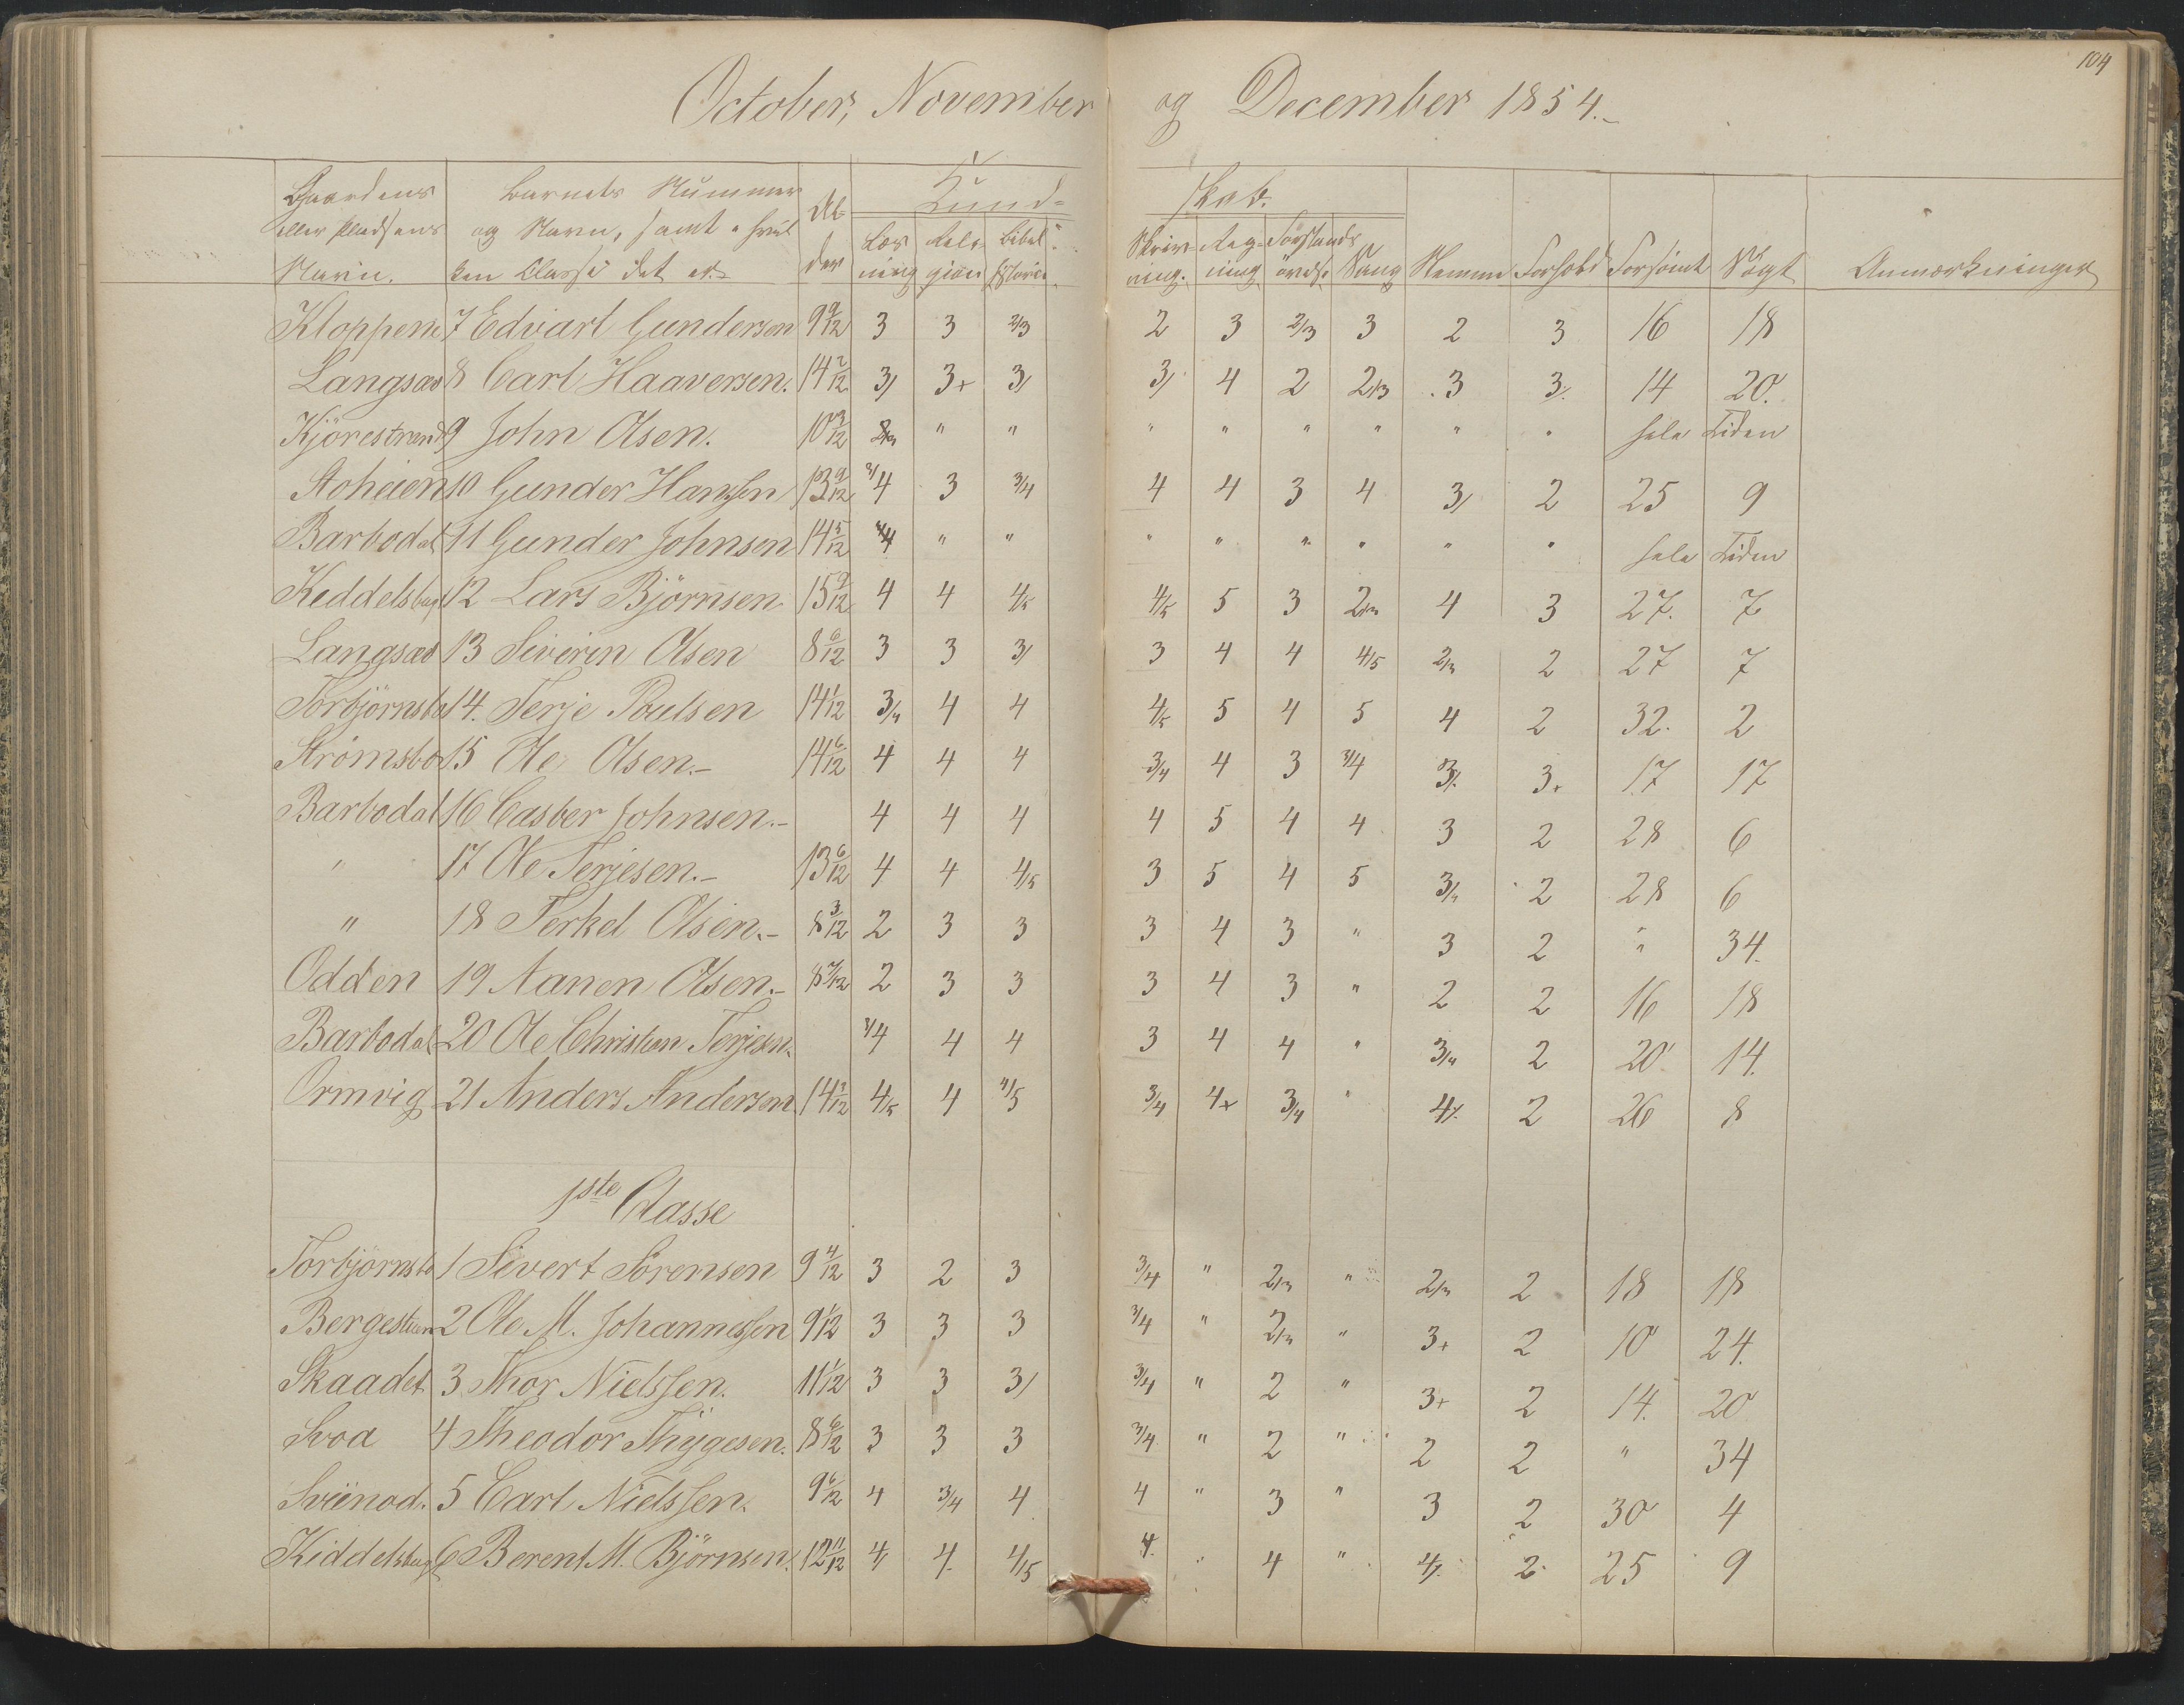 104
October, November og December 1854.-
Gaardens eller Pladsens Navn. Barnets Nummer og Navn, samt i hvilken Classe det er Alder Kundskab. Læsning Religion Bibelhistorie Skrivning. Regning Forstandsøvelse Sang Nemme Forhold Forsömt Sögt Anmærkninger
Kloppene 7 Edvart Gundersen 9 9/12 3 3 2/3 2 3 2/3 3 2 3 16 18
Langsæ 8 Carl Haaversen. 14 2/12 3/ 3+ 3/ 3/ 4 2 2/3 3 3/. 14 20.
Kjörestrand 9 John Olsen. 10 3/12 " " " " " " " " hele Tiden
Stoheien 10 Gunder Hanssen 13 9/12 3/4 3 3/4 4 4 3 4 3/ 2 25 9
Barbodal 11 Gunder Johnsen 14 5/12 " " " " " " " " hele Tiden
Keddelsbug 12 Lars Björnsen 15 9/12 4 4 4/5 4/5 5 3 2/3 4 3 27. 7
Langsæ 13 Siverin Olsen 8 6/12 3 3 3/ 3 4 4 4/5 2/3 2 27 7
Torbjörnsbo 14. Terje Poulsen 14 1/12 3/4 4 4 4/5 5 4 5 4 2 32. 2
Strömsbo 15 Ole Olsen.- 14 6/12 4 4 4 3/4 4 3 3/4 3/. 3+ 17 17
Barbodal 16 Casber Johnsen.- 4 4 4 4 5 4 4 3 2 28 6
" 17 Ole Terjesen.- 13 6/12 4 4 4/5 3 5 4 5 3/4 2 28 6
" 18 Terkel Olsen.- 8 3/12 2 3 3 3 4 3 " 3 2 " 34.
Odden 19 Aanen Olsen.- 8 7/12 2 3 3 3 4 3 " 2 2 16 18
Barbodal 20 Ole Christian Terjesen. 3/4 4 4 3 4 4 " 3/4 2 20. 14.
Ormvig 21 Anders Andersen 14 3/12 4/5 4 4/5 3/4 4+ 3/4 " 4/. 2 26 8
1ste Classe
Torbjörnsbo 1 Sivert Sörensen 9 4/12 3 2 3 3/4 " 2/3 " 2/3 2 18 18
2 Ole M. Johannessen 9 1/12 3 3 3 3/4 " 2/3 " 3+ 2 10 24.
Skaadet 3 Thor Nielssen. 11 1/12 3 3 3/ 3/4 " 2 " 3+ 2 14. 20
Svoa 4 Theodor Thygesen. 8 6/12 3 3 3 3/4 " 2 " 2 2 " 34
Sviinod. 5 Carl Nielssen. 9 6/12 4 3/4 4 4 " 3 " 3 2 30 4
Kiddelsbug 6 Berent M. Björnsen. 12 11/12 4/ 4. 4/5 4. " 4 " 4/. 2 25 9